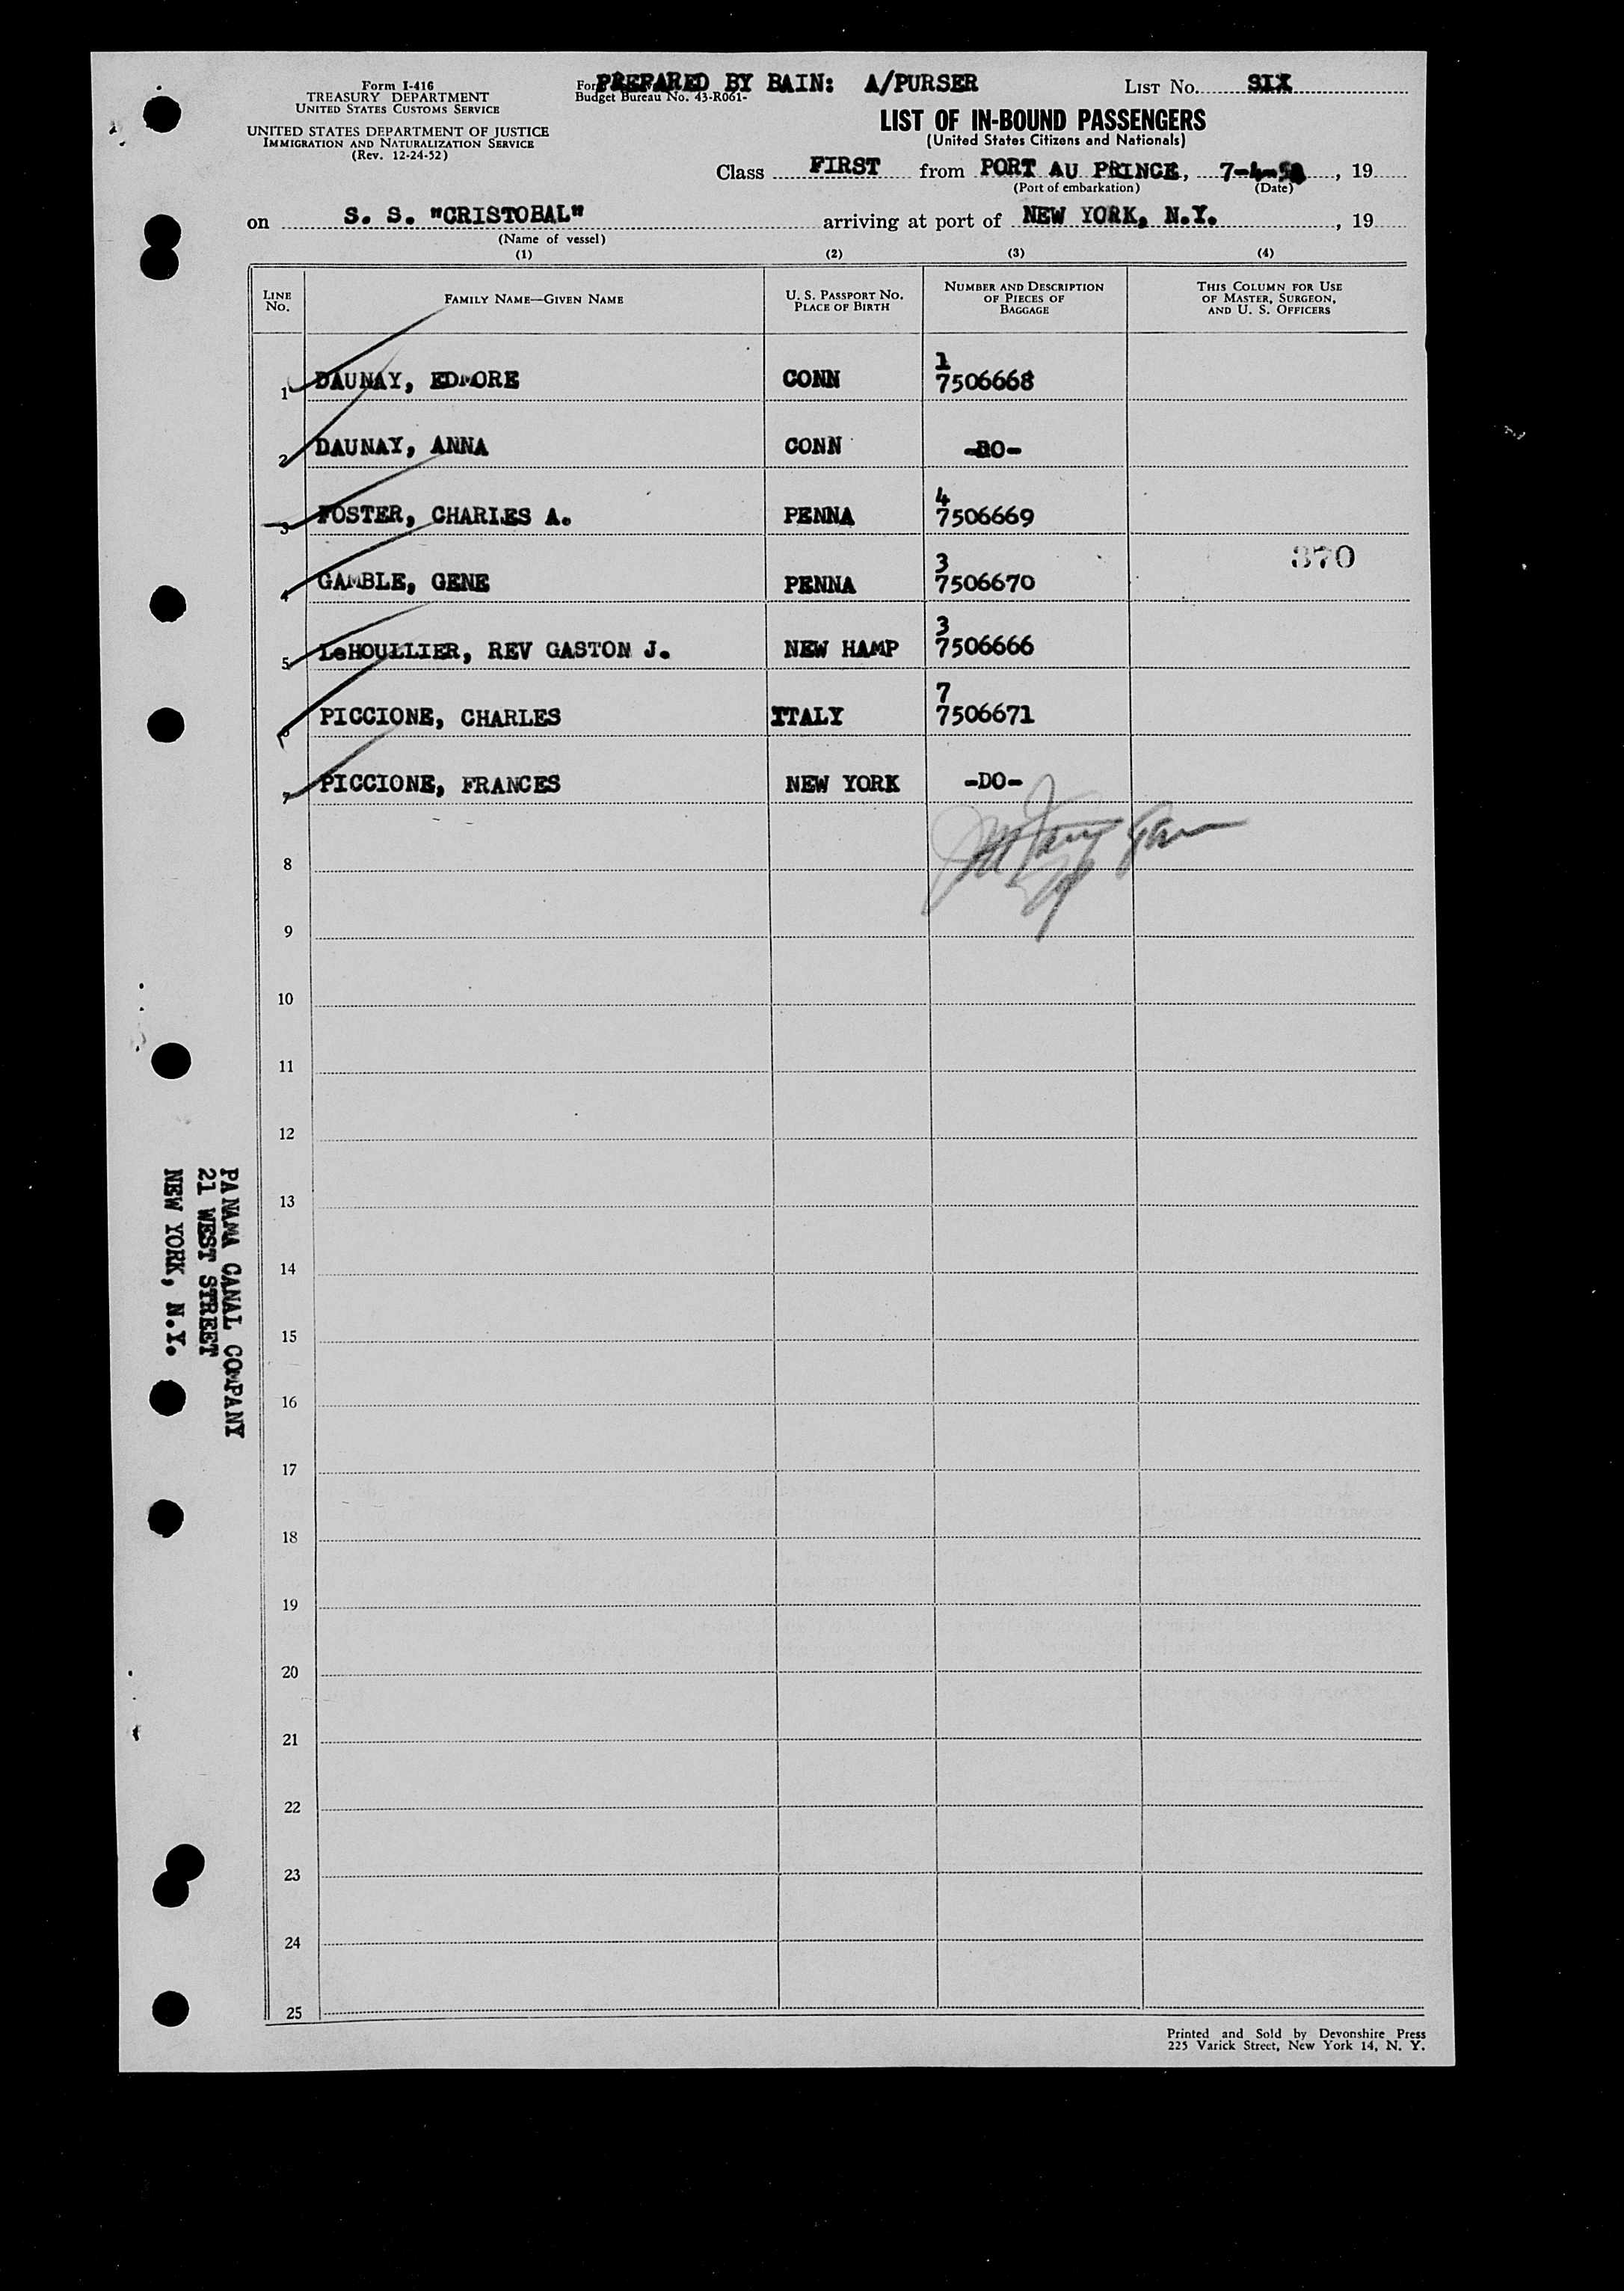 Form I-416
TREASURY DEPARTMENT
UNITED STATES CUSTOMS SERVICE
UNITED STATES DEPARTMENT OF JUSTICE
IMMIGRATION AND NATURALIZATION SERVICE
(Rev. 12-24-52)
PREPARED BY BAIN: A/PURSER
Budget Bureau No. 43-R061-
LIST No. SIX
LIST OF IN-BOUND PASSENGERS
(United States Citizens and Nationals)
Class FIRST from PORT AU PRINCE, 7-4- , 19
(Port of embarkation) (Date)
on S. S. "CRISTOBAL" arriving at port of NEW YORK, N.Y. , 19
(Name of vessel)
(1) (2) (3) (4)
LINE No. FAMILY NAME—GIVEN NAME U. S. PASSPORT No. PLACE OF BIRTH NUMBER AND DESCRIPTION OF PIECES OF BAGGAGE THIS COLUMN FOR USE OF MASTER, SURGEON, AND U. S. OFFICERS
1 DAUNAY, EDMORE CONN 1 7506668
2 DAUNAY, ANNA CONN -DO-
3 FOSTER, CHARLES A. PENNA 4 7506669
370
4 GAMBLE, GENE PENNA 3 7506670
5 LeHOULLIER, REV GASTON J. NEW HAMP 3 7506666
6 PICCIONE, CHARLES ITALY 7 7506671
7 PICCIONE, FRANCES NEW YORK -DO-
8
9
10
11
12
13
14
15
16
17
18
19
20
21
22
23
24
25
PANAMA CANAL COMPANY
21 WEST STREET
NEW YORK, N.Y.
Printed and Sold by Devonshire Press
225 Varick Street, New York 14, N. Y.